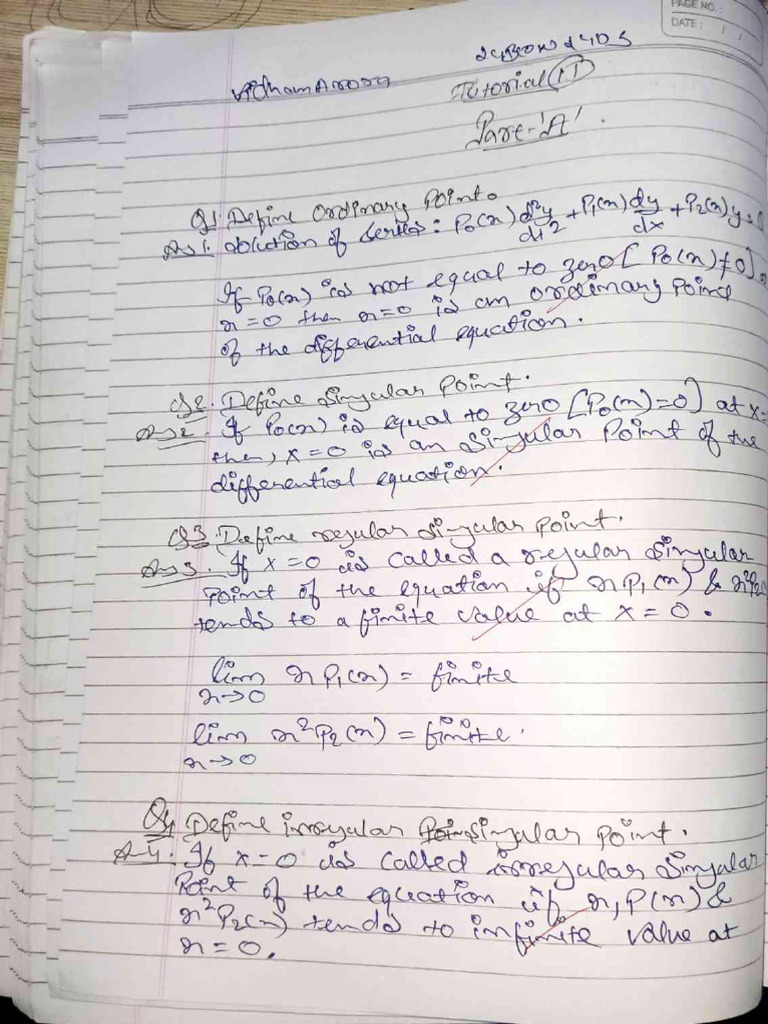 PAGE NO.:
DATE: / /
Tutorial (11)
Part-'A'.
Q1. Define ordinary point.
Ans 1. solution of series: P₀(x) d²y/dx² + P₁(x) dy/dx + P₂(x) y = 0
If P₀(x) is not equal to zero [P₀(x) ≠ 0]
x = 0 then x = 0 is an ordinary point
of the differential equation.
Q2. Define singular point.
Ans 2. If P₀(x) is equal to zero [P₀(x) = 0] at x =
then, x = 0 is an singular point of the
differential equation.
Q3. Define regular singular point.
Ans 3. If x = 0 is called a regular singular
point of the equation if x P₁(x) & x²P₂
tends to a finite value at x = 0.
lim x P₁(x) = finite
x→0
lim x² P₂(x) = finite.
x→0
Q4 Define irregular singular point.
A-4. If x = 0 is called irregular singular
point of the equation if x, P(x) &
x² P₂(x) tends to infinite value at
x = 0.